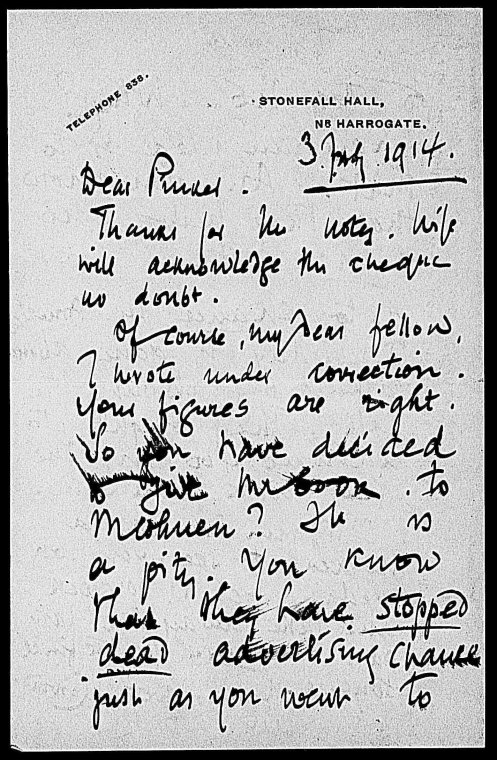 TELEPHONE 838.
STONEFALL HALL,
NR HARROGATE.
3 July 1914.
Dear Pinker.
Thanks for the notes. Wife
will acknowledge the cheque
no doubt.
Of course, my dear fellow,
I wrote under correction.
Your figures are right.
So you have decided
to give the book to
Methuen? It is
a pity. You know
that they have stopped
dead advertising Chance
just as you went to